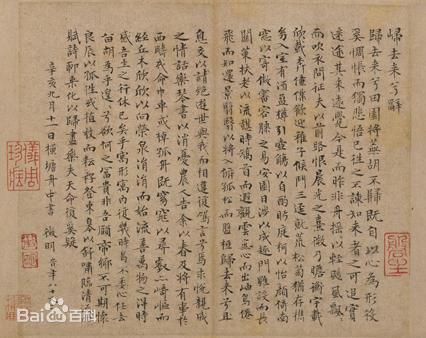 歸去來兮辭
歸去來兮田園將蕪胡不歸既自以心為形役
奚惆悵而獨悲悟已往之不諫知來者之可追實
迷途其未遠覺今是而昨非舟搖以輕颺風飄
而吹衣問征夫以前路恨晨光之熹微乃瞻衡宇載
欣載奔僮僕歡迎稚子候門三逕就荒松菊猶存携
幼入室有酒盈樽引壺觴以自酌眄庭柯以怡顏倚南
窓以寄傲審容膝之易安園日涉以成趣門雖設而長
關策扶老以流憩時矯首而遐觀雲無心而出岫鳥倦
飛而知還景翳翳以將入撫孤松而盤桓歸去來兮且
息交以請絕遊世與我而相違復駕言兮焉求悅親戚
之情話樂琴書以消憂農人告余以春及將有事於
西疇或命巾車或棹孤舟既窈窕以尋壑亦崎嶇而
經丘木欣欣以向榮泉涓涓而始流善萬物之得時
感吾生之行休已矣乎寓形宇內復幾時曷不委心任去
留胡為乎遑遑兮欲何之富貴非吾願帝鄉不可期懷
良辰以孤往或植杖而耘耔登東皋以舒嘯臨清流而
賦詩聊乘化以歸盡樂夫天命復奚疑
辛亥九月十一日橫塘舟中書 徵明 時年八十二
Bai百科